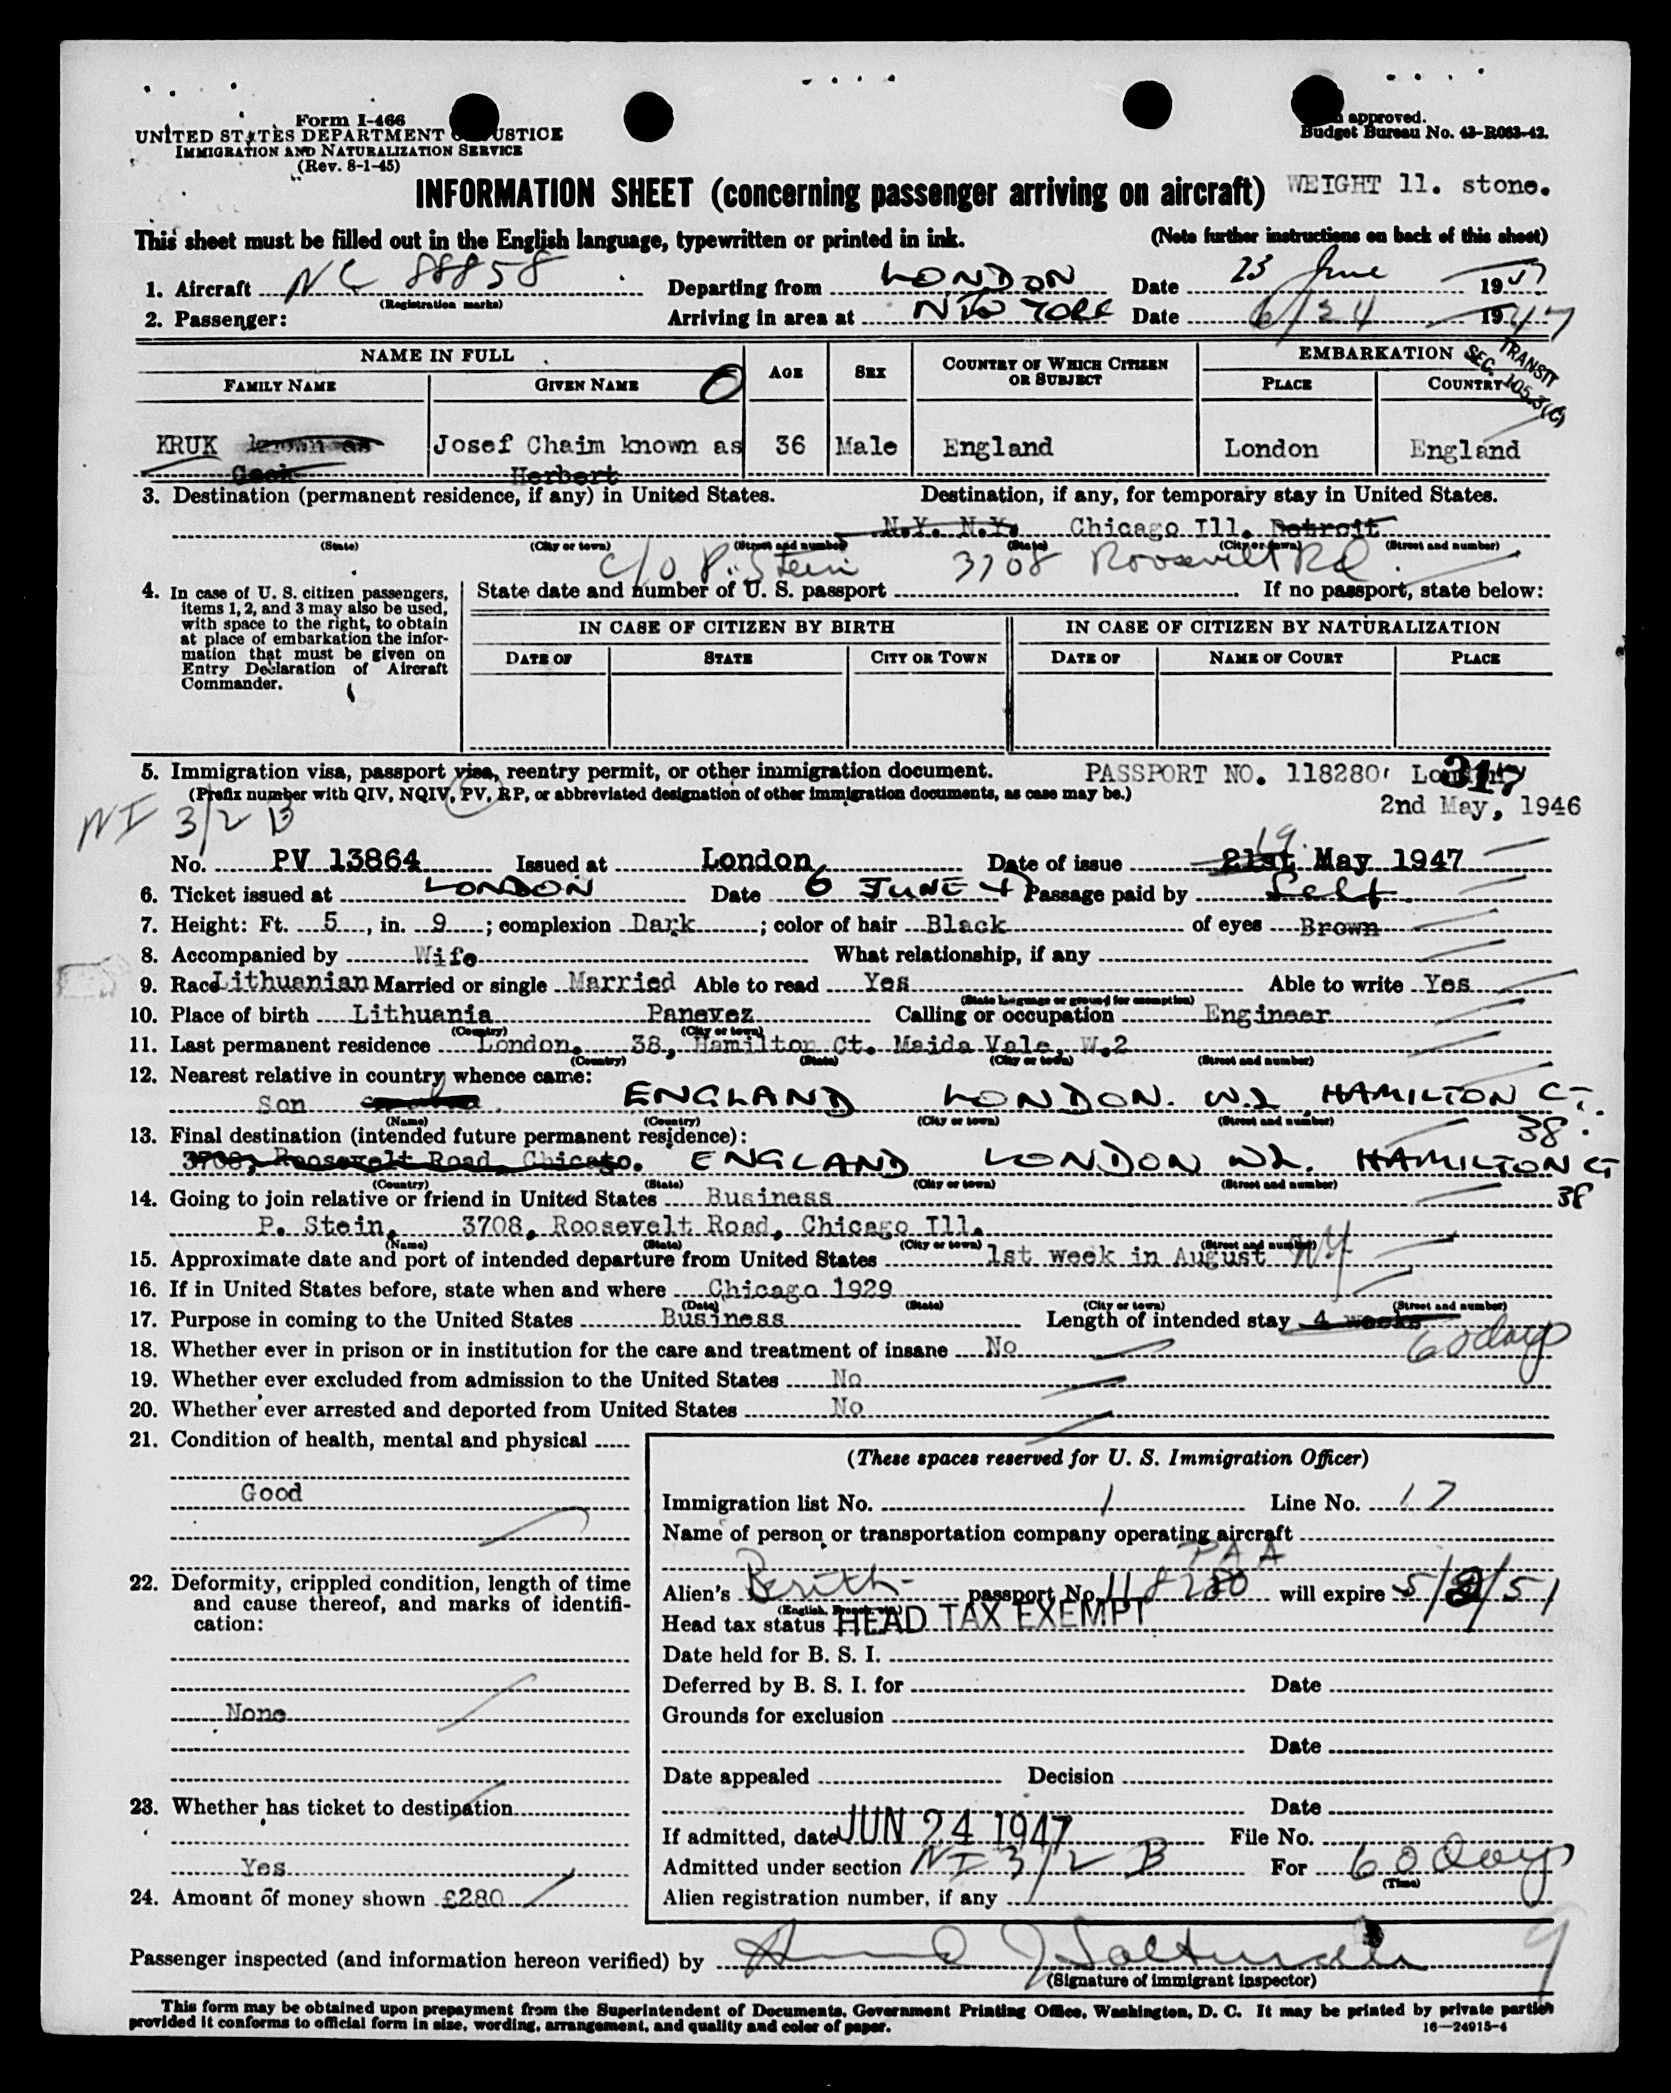 Form I-466
UNITED STATES DEPARTMENT OF JUSTICE
IMMIGRATION AND NATURALIZATION SERVICE
(Rev. 8-1-45)
approved.
Budget Bureau No. 43-R083-42.
INFORMATION SHEET (concerning passenger arriving on aircraft) WEIGHT 11. stone.
This sheet must be filled out in the English language, typewritten or printed in ink. (Note further instructions on back of this sheet)
1. Aircraft NC 88858 Departing from LONDON Date 23 June 1947
(Registration marks)
2. Passenger: Arriving in area at NEW YORK Date 6/24 1947
NAME IN FULL AGE SEX COUNTRY OF WHICH CITIZEN OR SUBJECT EMBARKATION
TRANSIT SEC. 105.3(C)
FAMILY NAME GIVEN NAME PLACE COUNTRY
KRUK known as Josef Chaim known as 36 Male England London England
Herbert
3. Destination (permanent residence, if any) in United States. Destination, if any, for temporary stay in United States.
N.Y. N.Y. Chicago Ill. Detroit
(State) (City or town) (Street and number) (State) (City or town) (Street and number)
c/o P. Stein 3708 Roosevelt Rd.
4. In case of U. S. citizen passengers, items 1, 2, and 3 may also be used, with space to the right, to obtain at place of embarkation the information that must be given on Entry Declaration of Aircraft Commander.
State date and number of U. S. passport If no passport, state below:
IN CASE OF CITIZEN BY BIRTH IN CASE OF CITIZEN BY NATURALIZATION
DATE OF STATE CITY OR TOWN DATE OF NAME OF COURT PLACE
5. Immigration visa, passport visa, reentry permit, or other immigration document. PASSPORT NO. 118280 317
(Prefix number with QIV, NQIV, PV, RP, or abbreviated designation of other immigration documents, as case may be.) 2nd May, 1946
NI 3/2 B
19.
No. PV 13864 Issued at London Date of issue 21st May 1947
6. Ticket issued at LONDON Date 6 JUNE 47 Passage paid by Self.
7. Height: Ft. 5, in. 9; complexion Dark; color of hair Black of eyes Brown
8. Accompanied by Wife What relationship, if any
9. Race Lithuanian Married or single Married Able to read Yes Able to write Yes
(State language or ground for exemption)
10. Place of birth Lithuania Panevez Calling or occupation Engineer
(Country) (City or town)
11. Last permanent residence London. 38, Hamilton Ct. Maida Vale, W.2
(Country) (State) (City or town) (Street and number)
12. Nearest relative in country whence came:
Son ENGLAND LONDON. W.2 HAMILTON CT.
(Name) (Country) (City or town) (Street and number)
38.
13. Final destination (intended future permanent residence):
3708, Roosevelt Road, Chicago. ENGLAND LONDON W2. HAMILTON CT
(Country) (State) (City or town) (Street and number)
38
14. Going to join relative or friend in United States Business
P. Stein, 3708, Roosevelt Road, Chicago Ill.
(Name) (State) (City or town) (Street and number)
15. Approximate date and port of intended departure from United States 1st week in August NY
16. If in United States before, state when and where Chicago 1929
(Date) (State) (City or town) (Street and number)
17. Purpose in coming to the United States Business Length of intended stay 4 weeks
60 days
18. Whether ever in prison or in institution for the care and treatment of insane No
19. Whether ever excluded from admission to the United States No
20. Whether ever arrested and deported from United States No
21. Condition of health, mental and physical
Good
22. Deformity, crippled condition, length of time and cause thereof, and marks of identification:
None
23. Whether has ticket to destination
Yes
24. Amount of money shown £280
(These spaces reserved for U. S. Immigration Officer)
Immigration list No. 1 Line No. 17
Name of person or transportation company operating aircraft
PAA
Alien's British passport No. 118280 will expire 5/2/51
(English, French, etc.)
Head tax status HEAD TAX EXEMPT
Date held for B. S. I.
Deferred by B. S. I. for Date
Grounds for exclusion
Date
Date appealed Decision
Date
If admitted, date JUN 24 1947 File No.
Admitted under section NI 3/2 B For 60 days
(Time)
Alien registration number, if any
Passenger inspected (and information hereon verified) by
(Signature of immigrant inspector)
This form may be obtained upon prepayment from the Superintendent of Documents, Government Printing Office, Washington, D. C. It may be printed by private parties
provided it conforms to official form in size, wording, arrangement, and quality and color of paper.
16—24915-4